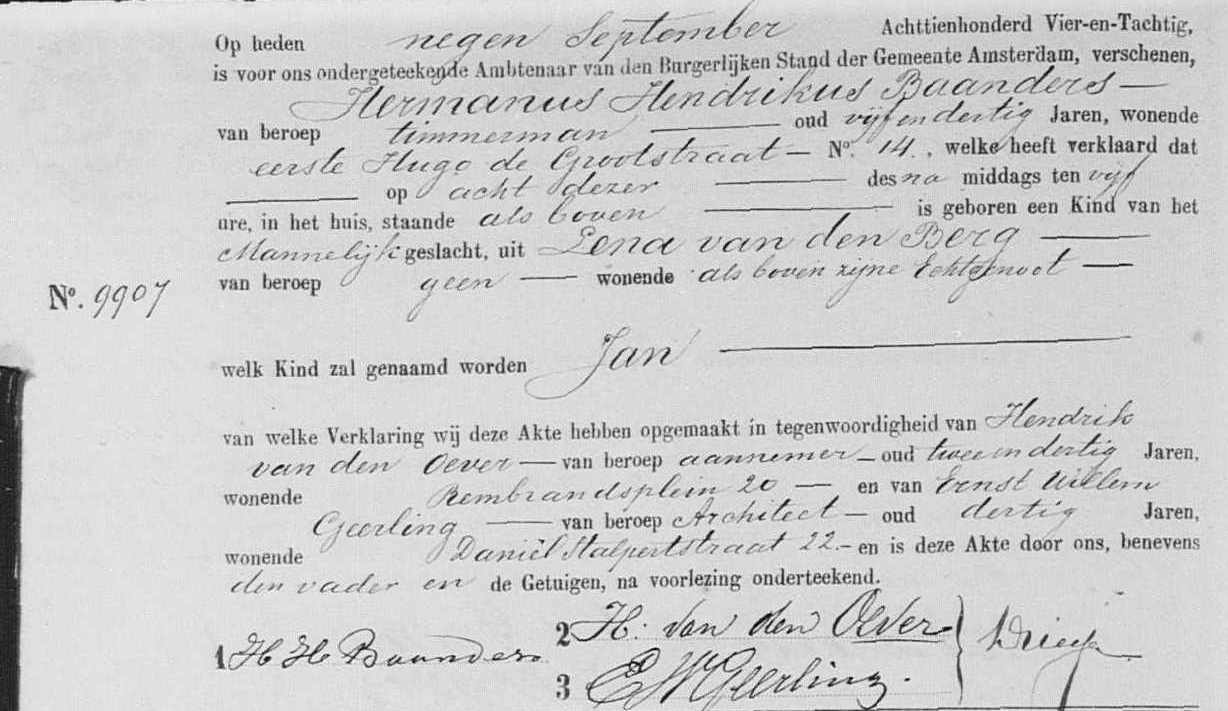 Op heden negen September Achttienhonderd Vier-en-Tachtig,
is voor ons ondergeteekende Ambtenaar van den Burgerlijken Stand der Gemeente Amsterdam, verschenen,
Hermanus Hendrikus Baanders
van beroep timmerman oud vijf en dertig Jaren, wonende
eerste Hugo de Grootstraat No. 14., welke heeft verklaard dat
op acht dezer des na middags ten vijf
ure, in het huis, staande als boven is geboren een Kind van het
Mannelijk geslacht, uit Lena van den Berg
van beroep geen wonende als boven zijne Echtgenoot
No. 9907
welk Kind zal genaamd worden Jan
van welke Verklaring wij deze Akte hebben opgemaakt in tegenwoordigheid van Hendrik
van den Oever van beroep aannemer oud twee en dertig Jaren,
wonende Rembrandsplein 20 en van Ernst Willem
Geerling van beroep Architect oud dertig Jaren,
wonende Daniël Stalpertstraat 22. en is deze Akte door ons, benevens
den vader en de Getuigen, na voorlezing onderteekend.
1 H H Baanders
2 H. van den Oever
3 E W Geerling.